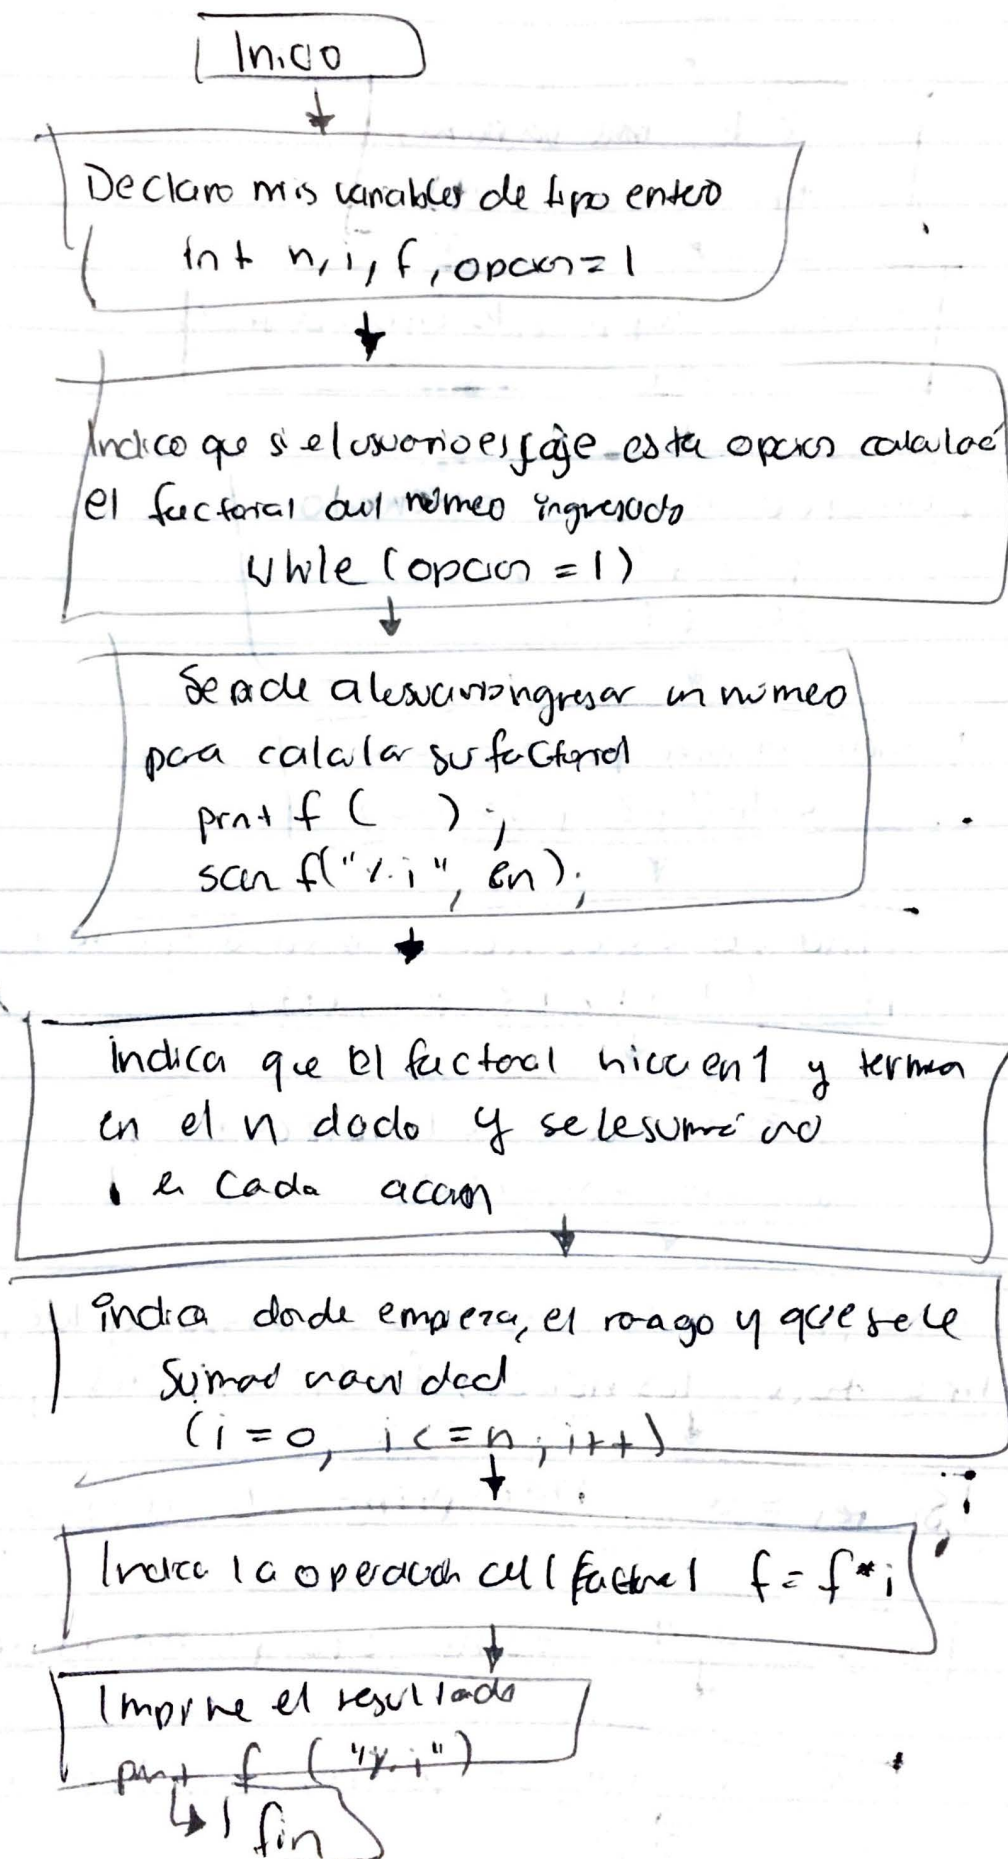 Inicio
Declaro mis variables de tipo entero
int n, i, f, opcion = 1
Indico que si el usuario escoje esta opcion calculaé
el factorial del número ingresado
while (opcion = 1)
Se pide al usuario ingresar un número
para calcular su factorial
printf ( );
scanf("%i", &n);
Indica que el factorial inicia en 1 y termina
en el n dado y se le sumará uno
en cada accion
indica donde empieza, el rango y que se le
suma unidad
(i = 0, i <= n; i++)
Indica la operacion del factorial f = f * i
Imprime el resultado
printf ("%i")
fin